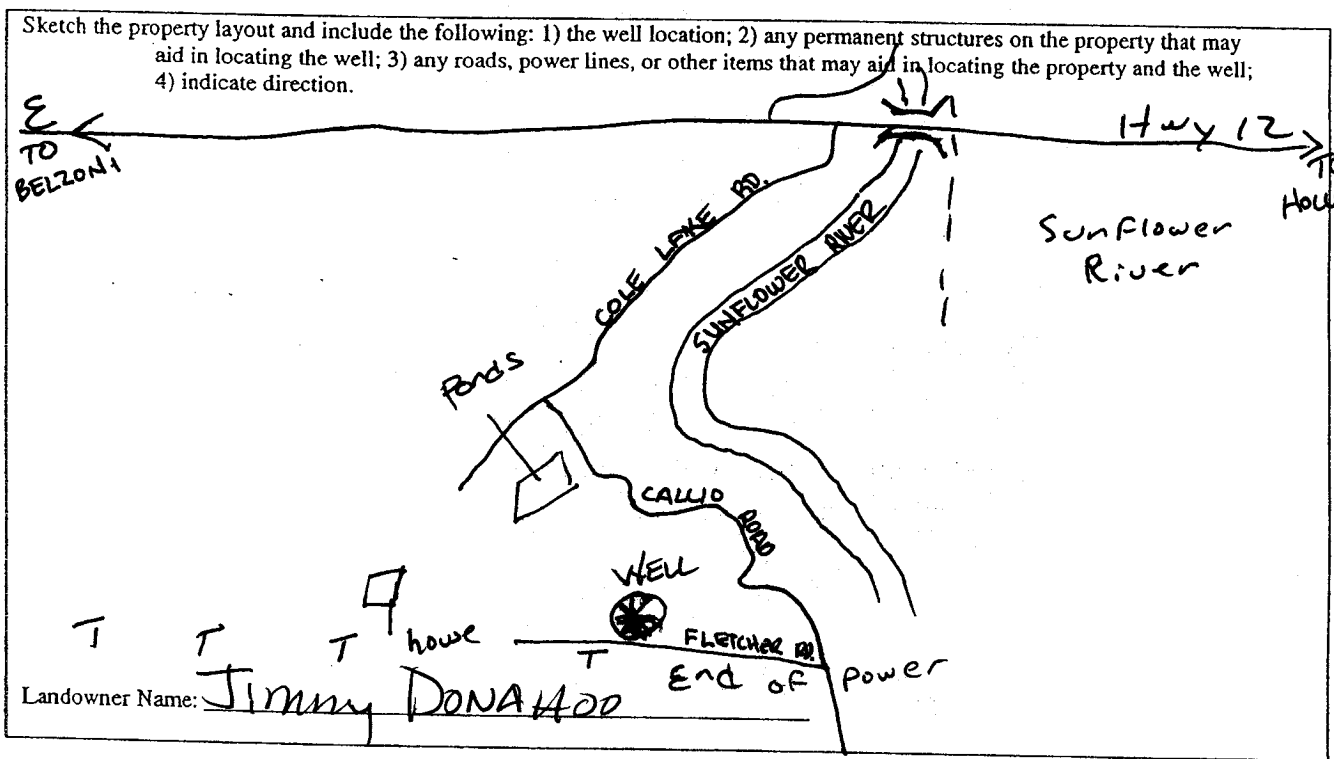 Sketch the property layout and include the following: 1) the well location; 2) any permanent structures on the property that may
aid in locating the well; 3) any roads, power lines, or other items that may aid in locating the property and the well;
4) indicate direction.
E
TO
BELZONI
Hwy 12
COLE LAKE RD.
SUNFLOWER RIVER
Sunflower
River
Ponds
CALLIO
ROAD
WELL
T T T howe
T
FLETCHER RD.
End of power
Landowner Name: Jimmy DONAHOO